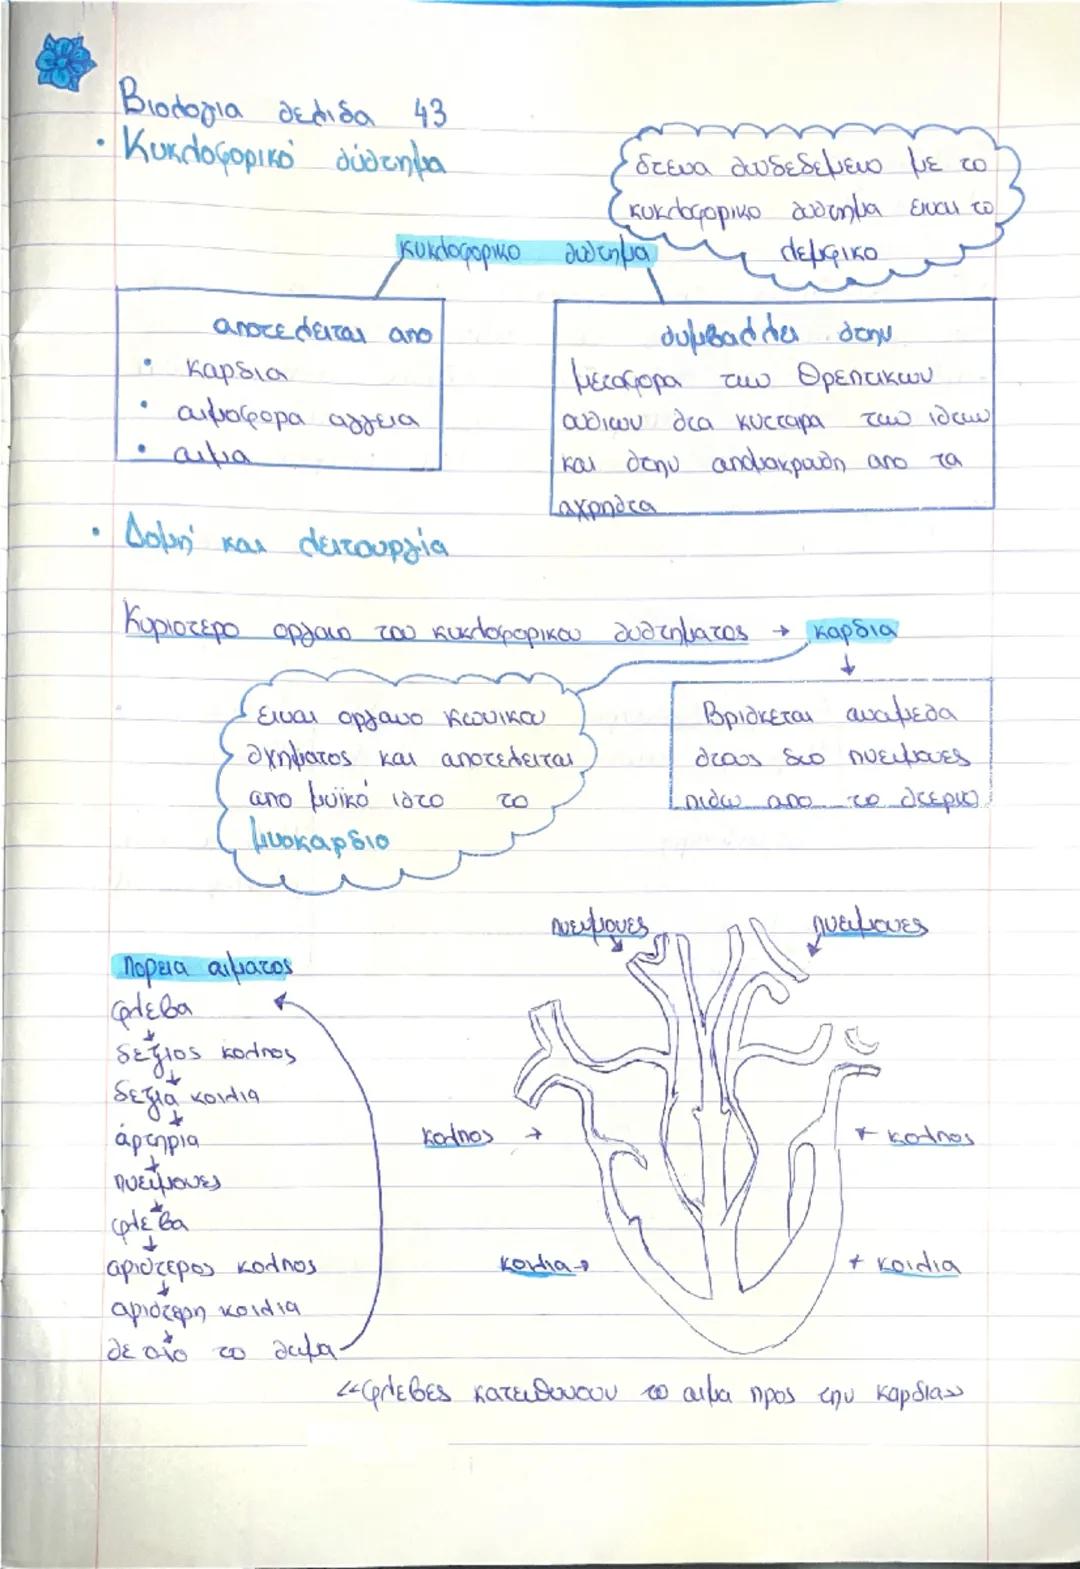 Βιολογια σελιδα 43
• Κυκλοφορικό σύστημα
στενα συνδεδεμενο με το
κυκλοφορικο συστημα ειναι το
λεμφικο
κυκλοφορικο συστημα
αποτελειται απο
• καρδια
• αιμοφορα αγγεια
• αιμα
συμβαλλει στην
μεταφορα των θρεπτικων
ουσιων στα κυτταρα των ιστων
και στην απομακρυση απο τα
αχρηστα
• Δομή και λειτουργία
Κυριοτερο οργανο του κυκλοφορικου συστηματος → καρδια
Ειναι οργανο κωνικου
σχηματος και αποτελειται
απο μυϊκό ιστο το
μυοκαρδιο
Βρισκεται αναμεσα
στους δυο πνευμονες
πισω απο το στερνο
πνευμονες
πνευμονες
Πορεια αιματος
φλεβα
↓
δεξιος κολπος
↓
δεξιά κοιλια
↓
άρτηρια
↓
πνευμονες
↓
φλεβα
↓
αριστερος κολπος
↓
αριστερη κοιλια
↓
σε ολο το σωμα
κολπος →
← κολπος
κοιλια →
← κοιλια
<<φλεβες κατευθυνουν το αιμα προς την καρδια>>